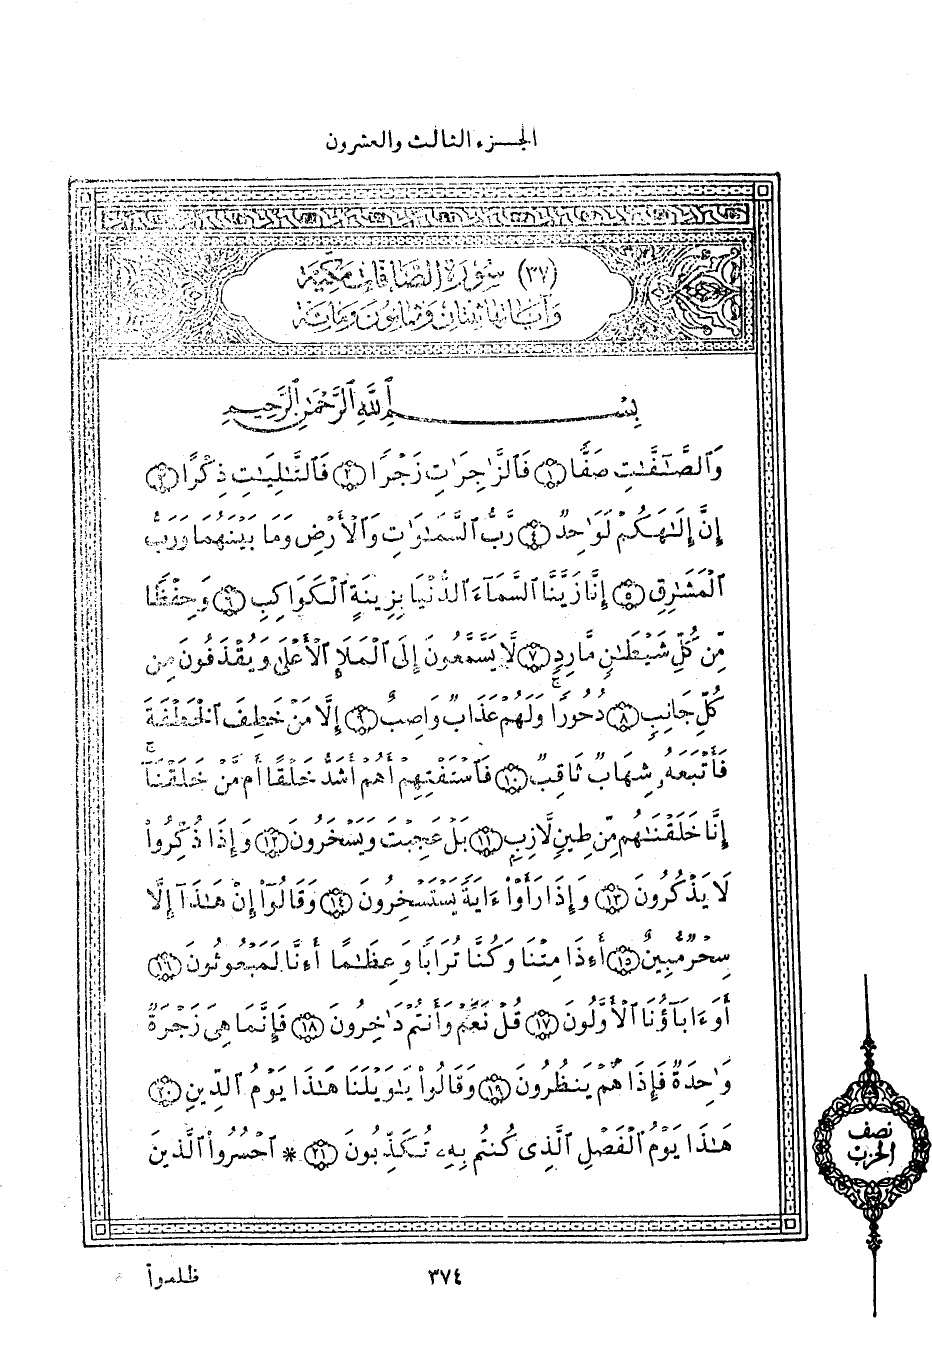 الجزء الثالث والعشرون
(٣٧) سُورَة الصَّافات مَكيَّة
وَآيَاتها ثِنتَان وَثمَانُونَ وَمِائة
بِسْمِ ٱللَّهِ ٱلرَّحْمَٰنِ ٱلرَّحِيمِ
وَٱلصَّـٰٓفَّـٰتِ صَفًّا ١ فَٱلزَّٰجِرَٰتِ زَجْرًا ٢ فَٱلتَّـٰلِيَـٰتِ ذِكْرًا ٣
إِنَّ إِلَـٰهَكُمْ لَوَٰحِدٌ ٤ رَّبُّ ٱلسَّمَـٰوَٰتِ وَٱلْأَرْضِ وَمَا بَيْنَهُمَا وَرَبُّ
ٱلْمَشَـٰرِقِ ٥ إِنَّا زَيَّنَّا ٱلسَّمَآءَ ٱلدُّنْيَا بِزِينَةٍ ٱلْكَوَاكِبِ ٦ وَحِفْظًا
مِّن كُلِّ شَيْطَـٰنٍ مَّارِدٍ ٧ لَّا يَسَّمَّعُونَ إِلَى ٱلْمَلَإِ ٱلْأَعْلَىٰ وَيُقْذَفُونَ مِن
كُلِّ جَانِبٍ ٨ دُحُورًا ۖ وَلَهُمْ عَذَابٌ وَاصِبٌ ٩ إِلَّا مَنْ خَطِفَ ٱلْخَطْفَةَ
فَأَتْبَعَهُۥ شِهَابٌ ثَاقِبٌ ١٠ فَٱسْتَفْتِهِمْ أَهُمْ أَشَدُّ خَلْقًا أَم مَّنْ خَلَقْنَآ ۚ
إِنَّا خَلَقْنَـٰهُم مِّن طِينٍ لَّازِبٍ ١١ بَلْ عَجِبْتَ وَيَسْخَرُونَ ١٢ وَإِذَا ذُكِّرُوا۟
لَا يَذْكُرُونَ ١٣ وَإِذَا رَأَوْا۟ ءَايَةً يَسْتَسْخِرُونَ ١٤ وَقَالُوٓا۟ إِنْ هَـٰذَآ إِلَّا
سِحْرٌ مُّبِينٌ ١٥ أَءِذَا مِتْنَا وَكُنَّا تُرَابًا وَعِظَـٰمًا أَءِنَّا لَمَبْعُوثُونَ ١٦
أَوَءَابَآؤُنَا ٱلْأَوَّلُونَ ١٧ قُلْ نَعَمْ وَأَنتُمْ دَٰخِرُونَ ١٨ فَإِنَّمَا هِىَ زَجْرَةٌ
وَٰحِدَةٌ فَإِذَا هُمْ يَنظُرُونَ ١٩ وَقَالُوا۟ يَـٰوَيْلَنَا هَـٰذَا يَوْمُ ٱلدِّينِ ٢٠
هَـٰذَا يَوْمُ ٱلْفَصْلِ ٱلَّذِى كُنتُم بِهِۦ تُكَذِّبُونَ ٢١ * ٱحْشُرُوا۟ ٱلَّذِينَ
نصف
الحزب
ظلموا
٣٧٤